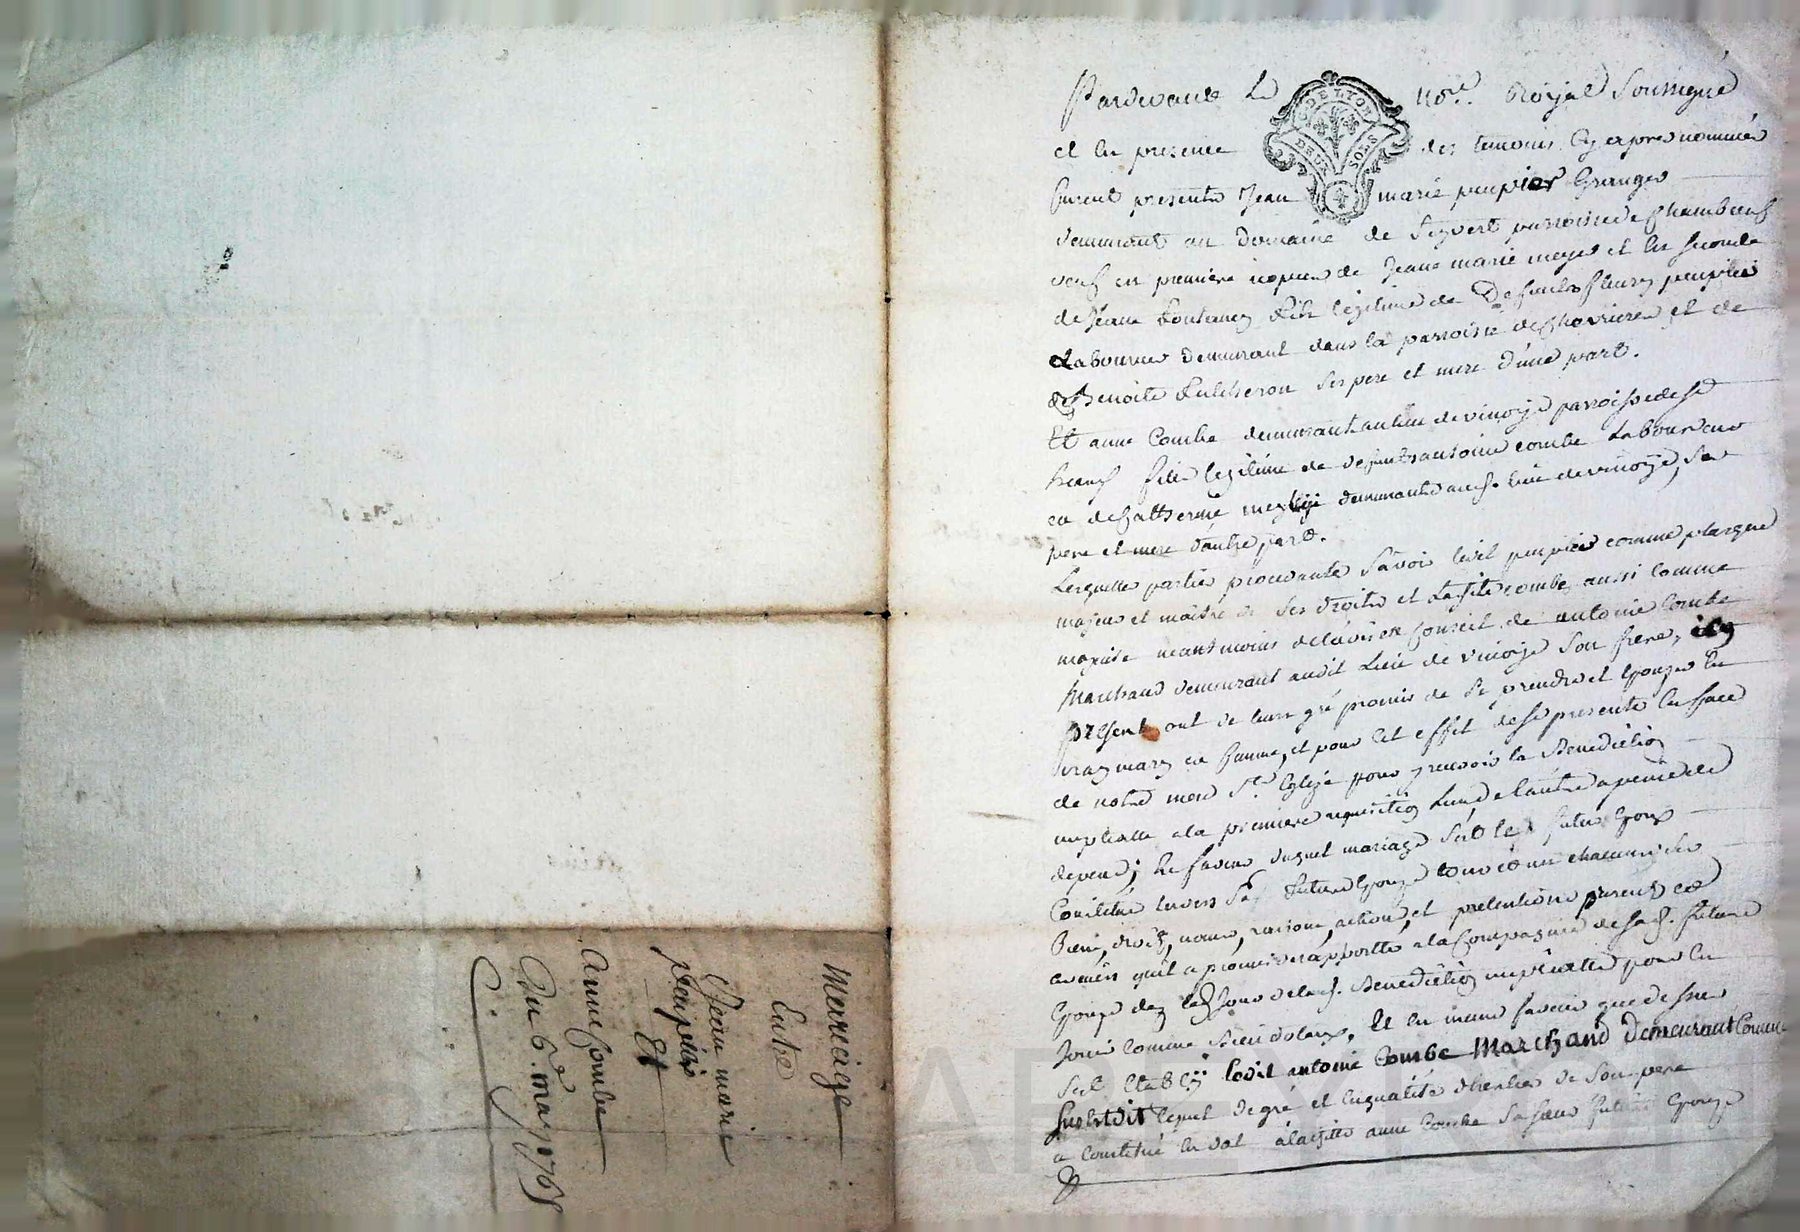 Mariage
Entre
Jean marie
paupier
Et
anne Combe
Du 6e. may 1765
Pardevant Le nore. Royal Soussigné
et en presence des temoins Cy apres nommés
furent presents Jean marie peupier Granger
demeurant au Domaine de paroisse de Chambeuf
veuf en premiere nopces de Jeane marie et en seconde
de Jeane fontaney fils legitime de Defunts fleury peupier
Laboureur demeurant dans la paroisse de Chevrieres et de
Benoite ses pere et mere d'une part.
Et anne Combe demeurant au lieu de vinoye parroisse de St
heand fille legitime de defunts antoine combe Laboureur
et de Catherine demeurants aud. lieu de vinoye, ses
pere et mere d'autre part.
Lesquelles parties procedantes savoir ledit peupier comme plasque
majeur et maitre de ses droits et Ladite combe aussi comme
majeure neantmoins de l'avis et Conseil de antoine Combe
Marchand demeurant audit Lieu de vinoye son frere, icy
présent ont de leurs gré promis de se prendre et Epouser en
vray mary et femme, et pour cet effet de se presenter en face
de notre mere Ste Eglise pour y recevoir la Benediction
nuptialle a la premiere requisition Lun de l'autre a peine de
depens; En faveur duquel mariage s'est le futur Epoux
Constitué envers sa future Epouse tous et un chacuns ses
Biens, droits, noms, raisons, actions, et pretentions presents et
avenirs qu'il a promis d'apporter a la Compagnie de sad. future
Epouse dez led. Jour de lad. Benediction nuptialle pour en
Jouir comme Biens dotaux, Et en meme faveur que dessus
s'est Etably ledit antoine Combe Marchand Demeurant Comme
susdit lequel de gré et en qualité d'heritier de son pere
a Constitué en dot a ladite anne Combe sa soeur future Epouse
G. DE LYON
DEUX SOLS